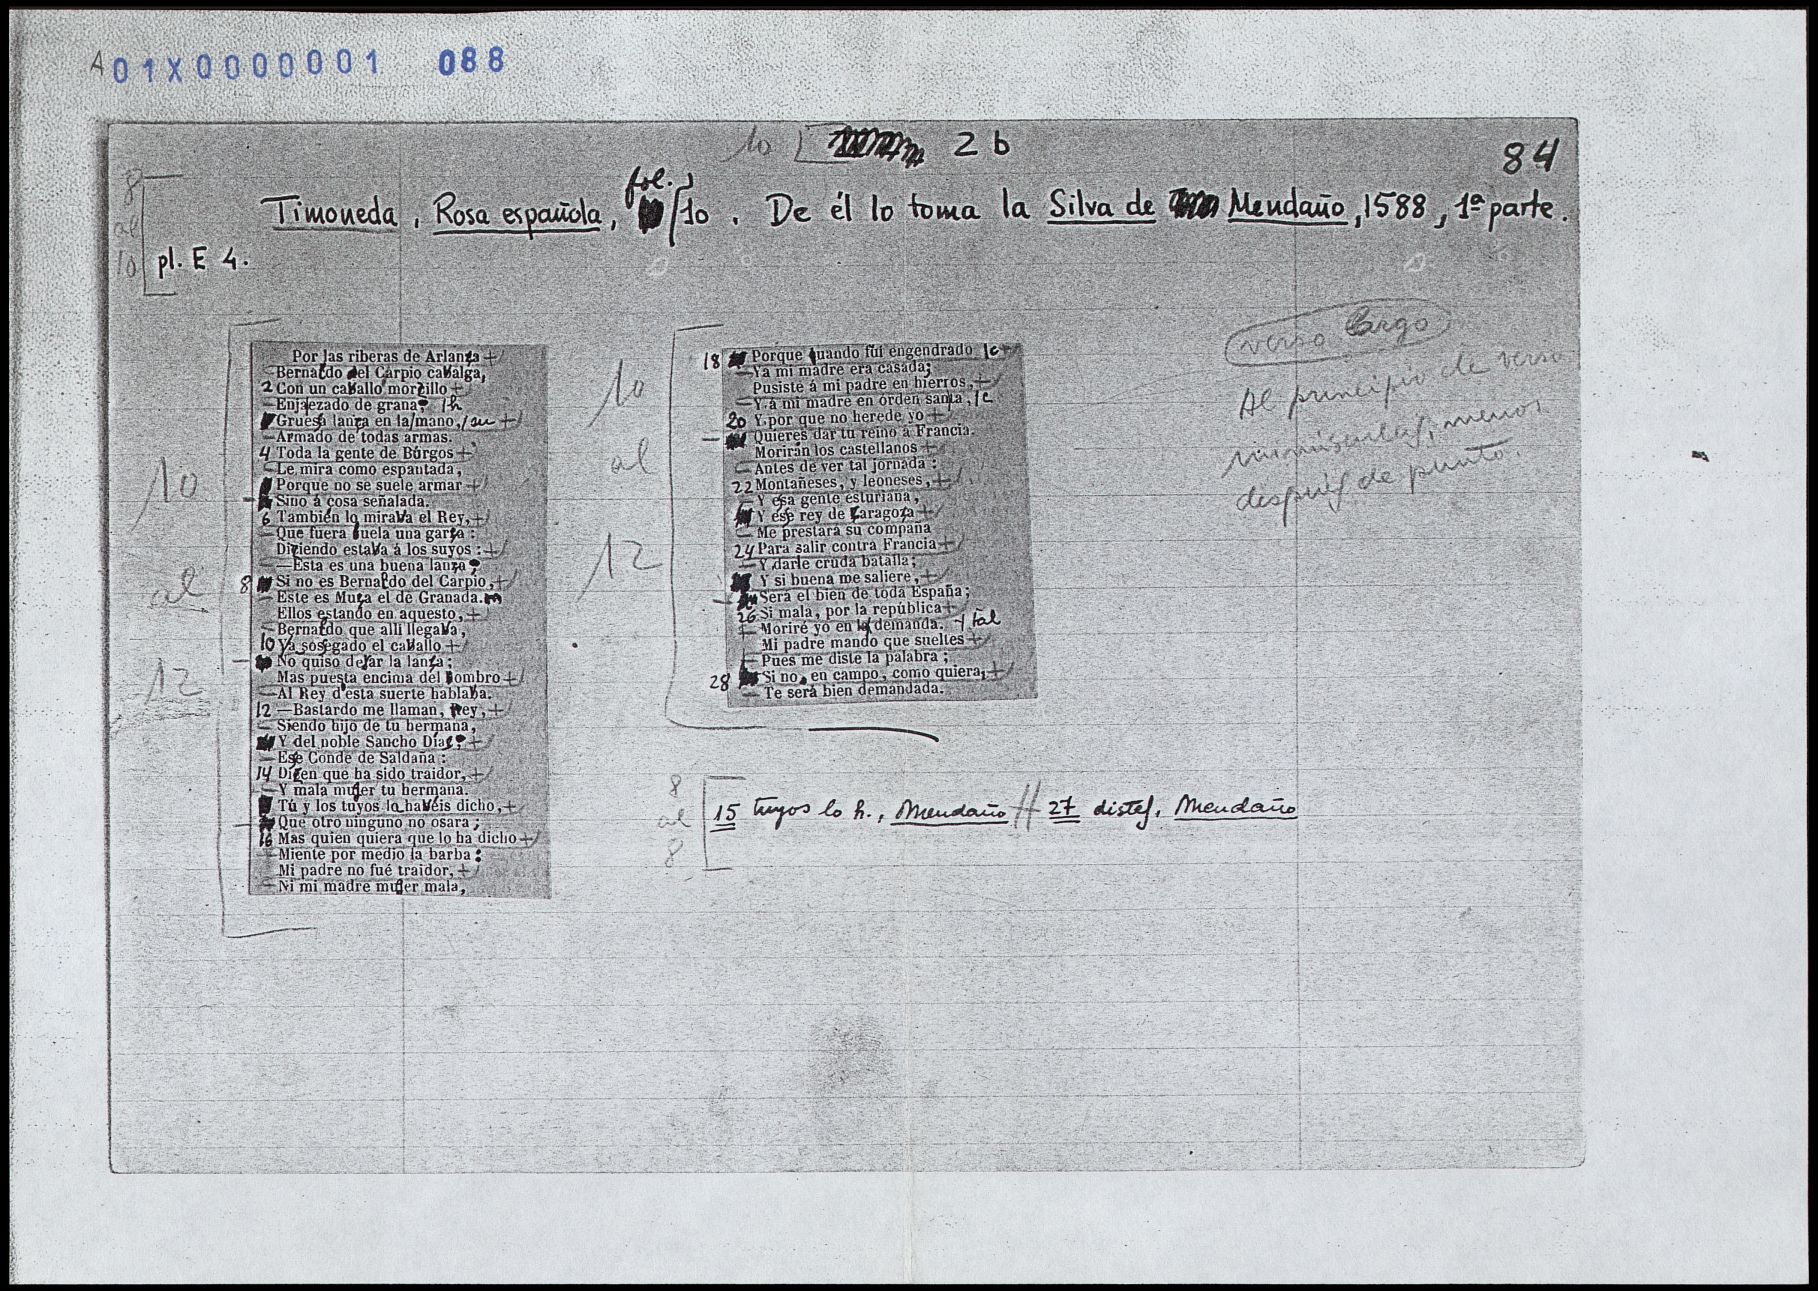 A01X0000001 088
10 2 b
84
8 al 10
Timoneda, Rosa española, fol. 10. De él lo toma la Silva de Mendaño, 1588, 1ª parte.
pl. E 4.
verso largo
Al principio de verso
minúsculas, menos
después de punto.
10 al 12
Por las riberas de Arlanza
Bernaldo del Carpio cavalga,
2 Con un cavallo morzillo
Enjaezado de grana; /h
Gruesa lanza en la/mano, /su
Armado de todas armas.
4 Toda la gente de Búrgos
Le mira como espantada,
Porque no se suele armar
Sino á cosa señalada.
6 Tambien lo mirava el Rey,
Que fuera buela una garza:
Diziendo estava á los suyos:
—Esta es una buena lanza;
8 Si no es Bernaldo del Carpio,
Este es Muza el de Granada.
Ellos estando en aquesto,
Bernaldo que alli llegava,
10 Ya sosegado el cavallo
No quiso dexar la lanza;
Mas puesta encima del hombro
Al Rey d'esta suerte hablava.
12 —Bastardo me llaman, Rey,
Siendo hijo de tu hermana,
Y del noble Sancho Díaz
Ese Conde de Saldaña:
14 Dizen que ha sido traidor,
Y mala muger tu hermana.
Tú y los tuyos lo havéis dicho,
Que otro ninguno no osara;
16 Mas quien quiera que lo ha dicho
Miente por medio la barba:
Mi padre no fué traidor,
Ni mi madre muger mala,
10 al 12
18 Porque quando fui engendrado /c
Ya mi madre era casada;
Pusiste á mi padre en hierros,
Y á mi madre en órden santa, /c
20 Y por que no herede yo
Quieres dar tu reino á Francia.
Morirán los castellanos
Antes de ver tal jornada:
22 Montañeses, y leoneses,
Y esa gente esturiana,
Y ese rey de Zaragoza
Me prestará su compaña
24 Para salir contra Francia
Y darle cruda batalla;
Y si buena me saliere,
Será el bien de toda España;
26 Si mala, por la república
Moriré yo en la demanda. /tal
Mi padre mando que sueltes
Pues me diste la palabra;
28 Si no, en campo, como quiera,
Te será bien demandada.
8 al 8
15 tuyos lo h., Mendaño // 27 distes, Mendaño